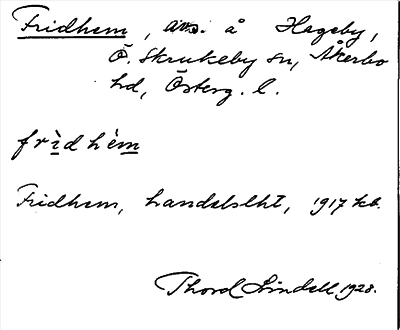 Fridhem, avs. å Hageby,
Ö. Skrukeby sn, Åkerbo
hd, Österg. l.
frìdhèm
Fridhem, handelslht, 1917 kb.
Thord Lindell 1928.